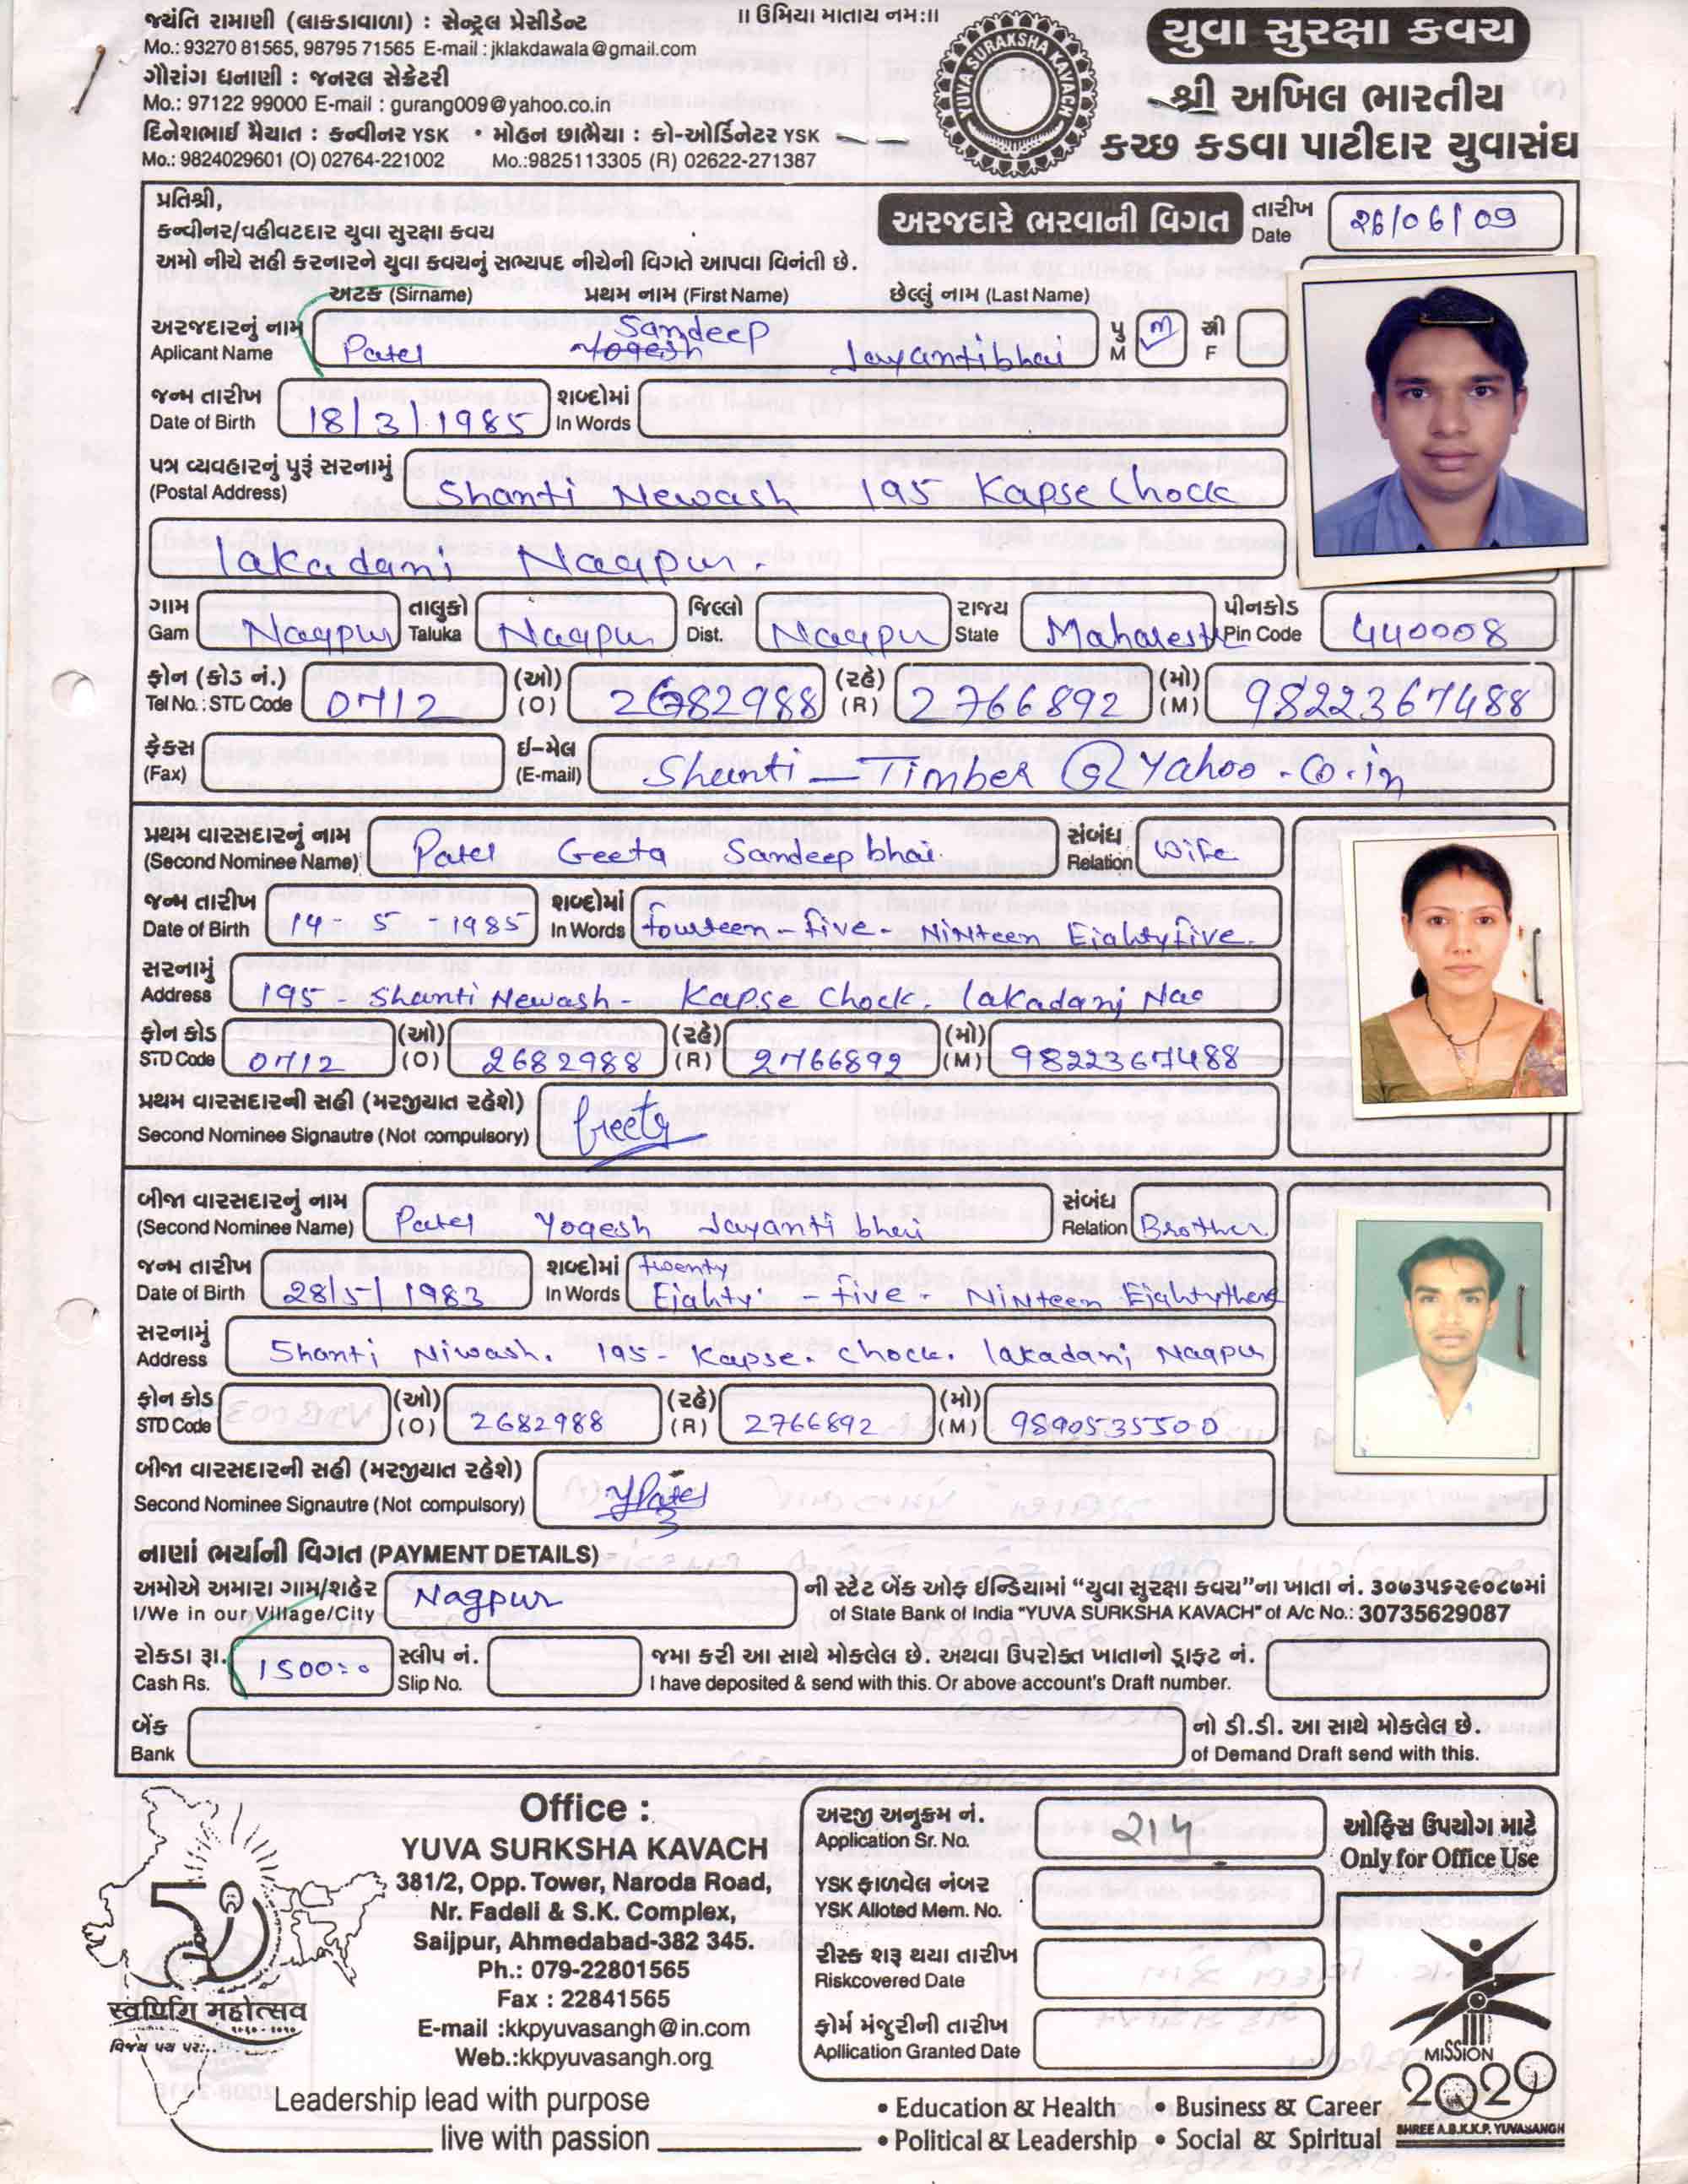 જયંતિ રામાણી (લાકડાવાળા) : સેન્ટ્રલ પ્રેસીડેન્ટ
Mo.: 93270 81565, 98795 71565 E-mail : jklakdawala@gmail.com
ગૌરાંગ ધનાણી : જનરલ સેક્રેટરી
Mo.: 97122 99000 E-mail : gurang009@yahoo.co.in
દિનેશભાઈ મૈયાત : કન્વીનર YSK • મોહન છાભૈયા : કો-ઓર્ડિનેટર YSK
Mo.: 9824029601 (O) 02764-221002 Mo.:9825113305 (R) 02622-271387
॥ ઉમિયા માતાય નમ:॥
YUVA SURAKSHA KAVACH
યુવા સુરક્ષા કવચ
શ્રી અખિલ ભારતીય
કચ્છ કડવા પાટીદાર યુવાસંઘ
પ્રતિશ્રી,
કન્વીનર/વહીવટદાર યુવા સુરક્ષા કવચ
અમો નીચે સહી કરનારને યુવા કવચનું સભ્યપદ નીચેની વિગતે આપવા વિનંતી છે.
અરજદારે ભરવાની વિગત
તારીખ
Date
26/06/09
અટક (Sirname) પ્રથમ નામ (First Name) છેલ્લું નામ (Last Name)
અરજદારનું નામ
Aplicant Name
Patel Yogesh Sandeep Jayantibhai
પુ M સ્ત્રી F
જન્મ તારીખ
Date of Birth
18/3/1985
શબ્દોમાં
In Words
પત્ર વ્યવહારનું પુરૂં સરનામું
(Postal Address)
Shanti Newash 195 Kapse Chock
lakadganj Nagpur.
ગામ Gam Nagpur તાલુકો Taluka Nagpur જિલ્લો Dist. Nagpu રાજ્ય State પીનકોડ Pin Code 440008
ફોન (કોડ નં.)
Tel No. : STD Code 0712 (ઓ) (O) 2682988 (રહે) (R) 2766892 (મો) (M) 9822367488
ફેક્સ
(Fax)
ઈ-મેલ
(E-mail) Shanti_Timber@Yahoo.co.in
પ્રથમ વારસદારનું નામ
(Second Nominee Name) Patel Geeta Sandeepbhai.
સંબંધ
Relation Wife
જન્મ તારીખ
Date of Birth 14-5-1985
શબ્દોમાં
In Words fourteen - five - Ninteen Eightyfive.
સરનામું
Address 195 - Shanti Newash - Kapse Chock. lakadganj Nag
ફોન કોડ
STD Code 0712 (ઓ) (O) 2682988 (રહે) (R) 2766892 (મો) (M) 9822367488
પ્રથમ વારસદારની સહી (મરજીયાત રહેશે)
Second Nominee Signautre (Not compulsory) Geeta
બીજા વારસદારનું નામ
(Second Nominee Name) Patel Yogesh Jayantibhai
સંબંધ
Relation Brother
જન્મ તારીખ
Date of Birth 28/5/1983
શબ્દોમાં
In Words twenty Eighty - five - Ninteen Eightythree
સરનામું
Address Shanti Niwash. 195 - Kapse. chock. lakadganj Nagpur
ફોન કોડ
STD Code (ઓ) (O) 2682988 (રહે) (R) 2766892 (મો) (M) 9890535500
બીજા વારસદારની સહી (મરજીયાત રહેશે)
Second Nominee Signautre (Not compulsory) YPatel
નાણાં ભર્યાની વિગત (PAYMENT DETAILS)
અમોએ અમારા ગામ/શહેર
I/We in our Village/City Nagpur
ની સ્ટેટ બેંક ઓફ ઈન્ડિયામાં “યુવા સુરક્ષા કવચ”ના ખાતા નં. ૩૦૭૩૫૬૨૯૦૮૭માં
of State Bank of India "YUVA SURKSHA KAVACH" of A/c No.: 30735629087
રોકડા રૂા.
Cash Rs. 1500=0
સ્લીપ નં.
Slip No.
જમા કરી આ સાથે મોકલેલ છે. અથવા ઉપરોક્ત ખાતાનો ડ્રાફ્ટ નં.
I have deposited & send with this. Or above account's Draft number.
બેંક
Bank
નો ડી.ડી. આ સાથે મોકલેલ છે.
of Demand Draft send with this.
Office :
YUVA SURKSHA KAVACH
381/2, Opp. Tower, Naroda Road,
Nr. Fadeli & S.K. Complex,
Saijpur, Ahmedabad-382 345.
Ph.: 079-22801565
Fax : 22841565
E-mail :kkpyuvasangh@in.com
Web.:kkpyuvasangh.org
50
महोत्सव
Leadership lead with purpose
live with passion
અરજી અનુક્રમ નં.
Application Sr. No. 214
YSK ફાળવેલ નંબર
YSK Alloted Mem. No.
રીસ્ક શરૂ થયા તારીખ
Riskcovered Date
ફોર્મ મંજુરીની તારીખ
Apllication Granted Date
ઓફિસ ઉપયોગ માટે
Only for Office Use
MISSION
2020
SHREE A.B.K.K.P. YUVASANGH
• Education & Health • Business & Career
• Political & Leadership • Social & Spiritual